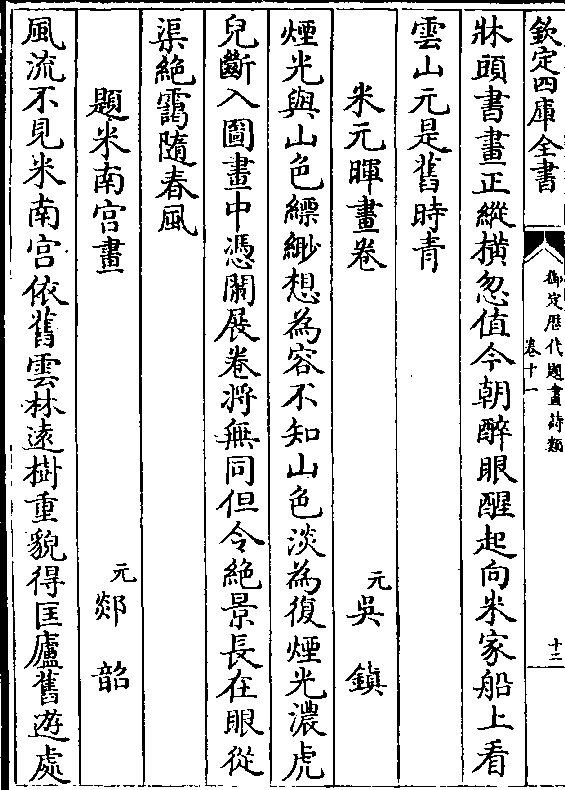 欽定四庫全書
御定歷代題畫詩類
卷十一
十三
牀頭書畫正縱横忽值今朝醉眼醒起向米家船上看
雲山元是舊時青
米元暉畫卷
元
吳鎮
煙光與山色縹緲想為容不知山色淡為復煙光濃虎
兒斷入圖畫中憑闌展卷將無同但令絶景長在眼從
渠絶靄隨春風
題米南宫畫
元
郯韶
風流不見米南宫依舊雲林遠樹重貌得匡廬舊遊處